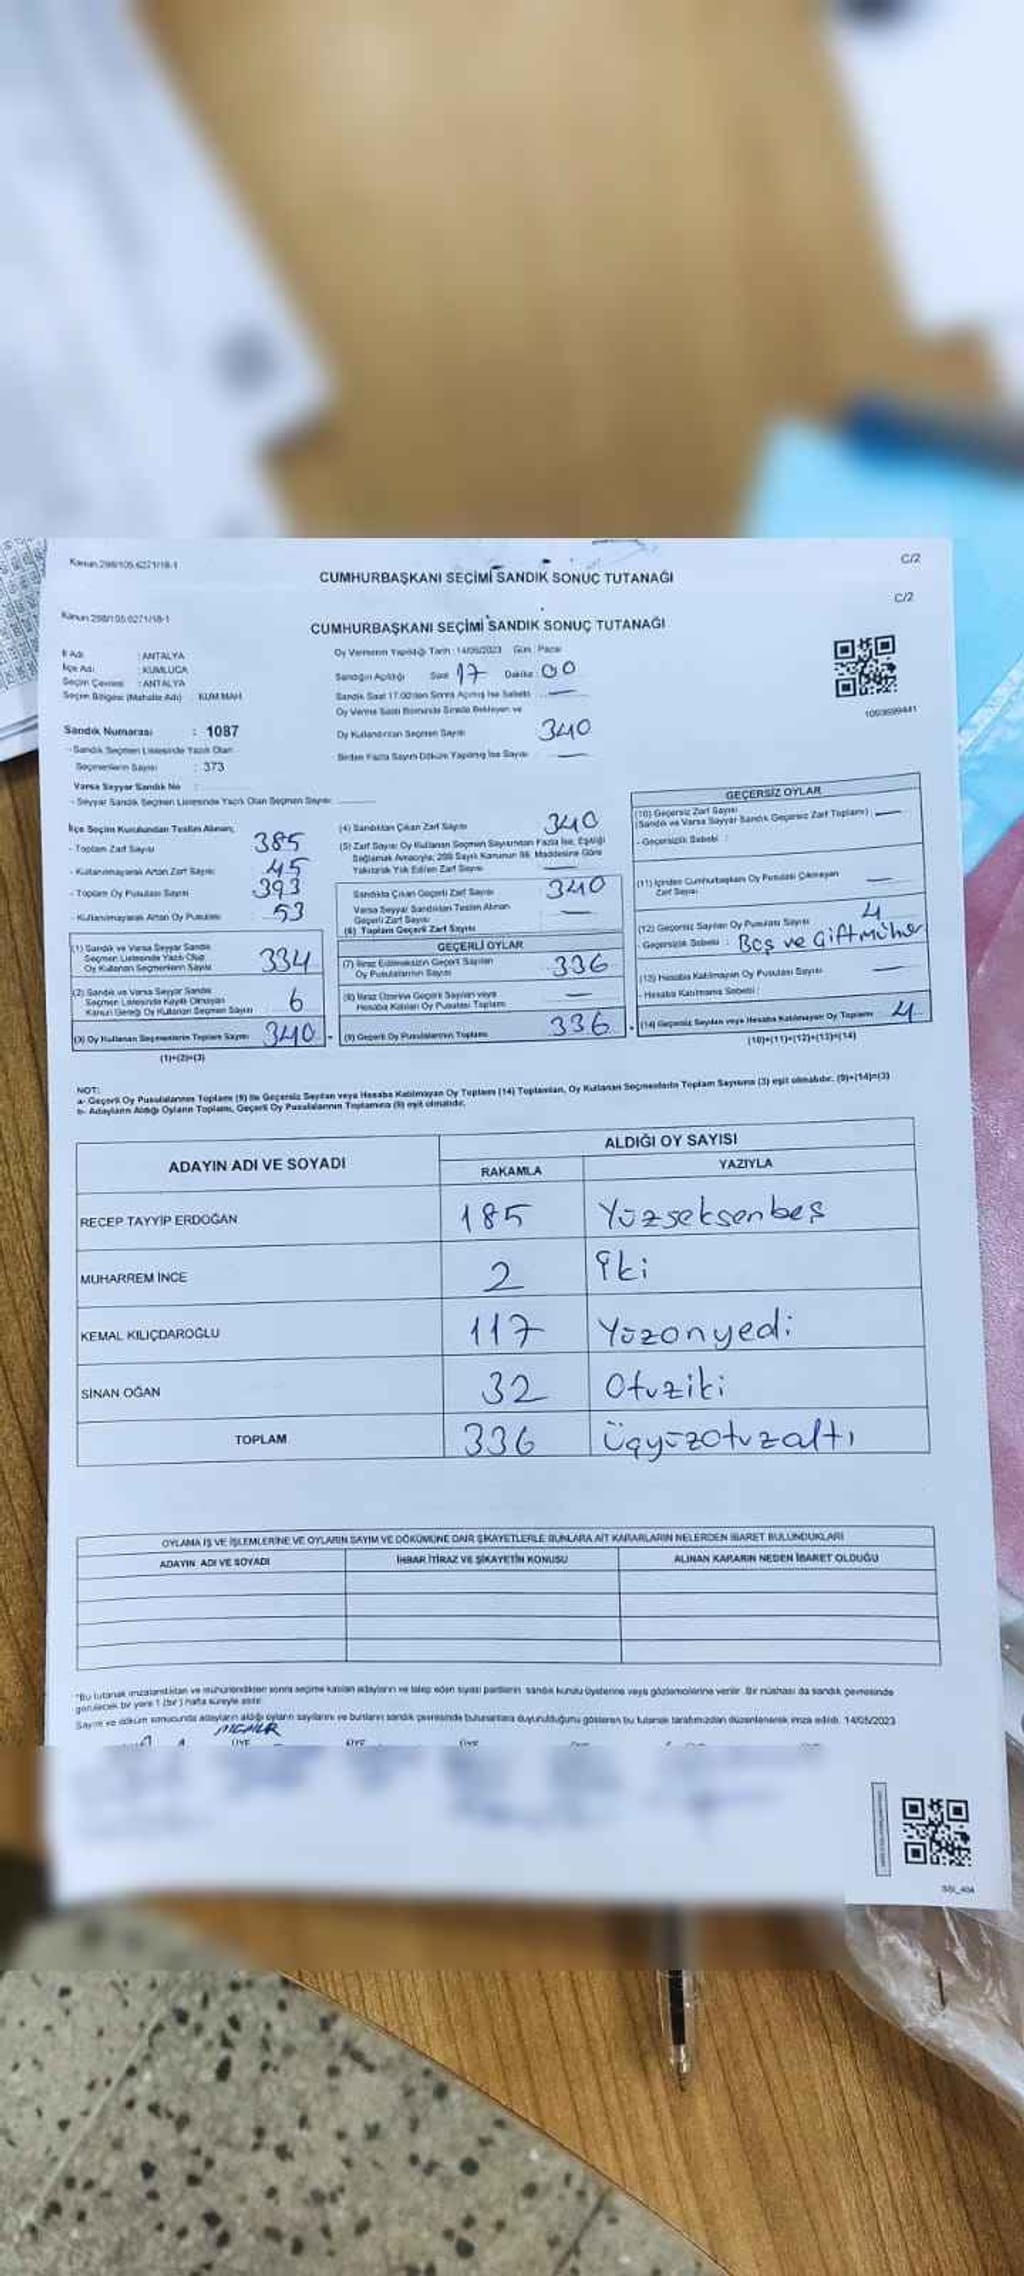 Kanun 298/105.6271/18-1
C/2
CUMHURBAŞKANI SEÇİMİ SANDIK SONUÇ TUTANAĞI
C/2
Kanun 298/105.6271/18-1
CUMHURBAŞKANI SEÇİMİ SANDIK SONUÇ TUTANAĞI
İl Adı : ANTALYA
İlçe Adı : KUMLUCA
Seçim Çevresi : ANTALYA
Seçim Bölgesi (Mahalle Adı) : KUM MAH.
Oy Vermenin Yapıldığı Tarih : 14/05/2023 Gün : Pazar
Sandığın Açıldığı Saat 17 Dakika : 00
Sandık Saat 17.00'den Sonra Açılmış İse Sebebi : —
Oy Verme Saati Bitiminde Sırada Bekleyen ve
Oy Kullandırılan Seçmen Sayısı 340
Birden Fazla Sayım Döküm Yapılmış İse Sayısı —
Sandık Numarası : 1087
- Sandık Seçmen Listesinde Yazılı Olan
Seçmenlerin Sayısı : 373
Varsa Seyyar Sandık No :
- Seyyar Sandık Seçmen Listesinde Yazılı Olan Seçmen Sayısı
İlçe Seçim Kurulundan Teslim Alınan;
- Toplam Zarf Sayısı 385
- Kullanılmayarak Artan Zarf Sayısı : 45
- Toplam Oy Pusulası Sayısı : 393
- Kullanılmayarak Artan Oy Pusulası : 53
(1) Sandık ve Varsa Seyyar Sandık
Seçmen Listesinde Yazılı Olup
Oy Kullanan Seçmenlerin Sayısı 334
(2) Sandık ve Varsa Seyyar Sandık
Seçmen Listesinde Kayıtlı Olmayan
Kanun Gereği Oy Kullanan Seçmen Sayısı 6
(3) Oy Kullanan Seçmenlerin Toplam Sayısı 340
(1)+(2)=(3)
(4) Sandıktan Çıkan Zarf Sayısı 340
(5) Zarf Sayısı Oy Kullanan Seçmen Sayısından Fazla İse, Eşitliği
Sağlamak Amacıyla; 298 Sayılı Kanunun 98. Maddesine Göre
Yakılarak Yok Edilen Zarf Sayısı —
Sandıkta Çıkan Geçerli Zarf Sayısı 340
Varsa Seyyar Sandıktan Teslim Alınan
Geçerli Zarf Sayısı —
(6) Toplam Geçerli Zarf Sayısı
GEÇERLİ OYLAR
(7) İtiraz Edilmeksizin Geçerli Sayılan
Oy Pusulalarının Sayısı 336
(8) İtiraz Üzerine Geçerli Sayılan veya
Hesaba Katılan Oy Pusulası Toplamı —
(9) Geçerli Oy Pusulalarının Toplamı 336
1093699441
GEÇERSİZ OYLAR
(10) Geçersiz Zarf Sayısı
(Sandık ve Varsa Seyyar Sandık Geçersiz Zarf Toplamı) —
- Geçersizlik Sebebi :
(11) İçinden Cumhurbaşkanı Oy Pusulası Çıkmayan
Zarf Sayısı —
(12) Geçersiz Sayılan Oy Pusulası Sayısı 4
- Geçersizlik Sebebi : Boş ve Çift Mühür
(13) Hesaba Katılmayan Oy Pusulası Sayısı —
- Hesaba Katılmama Sebebi :
(14) Geçersiz Sayılan veya Hesaba Katılmayan Oy Toplamı 4
(10)+(11)+(12)+(13)=(14)
NOT:
a- Geçerli Oy Pusulalarının Toplamı (9) ile Geçersiz Sayılan veya Hesaba Katılmayan Oy Toplamı (14) Toplamları, Oy Kullanan Seçmenlerin Toplam Sayısına (3) eşit olmalıdır. (9)+(14)=(3)
b- Adayların Aldığı Oyların Toplamı, Geçerli Oy Pusulalarının Toplamına (9) eşit olmalıdır.
ADAYIN ADI VE SOYADI
ALDIĞI OY SAYISI
RAKAMLA YAZIYLA
RECEP TAYYİP ERDOĞAN 185 Yüzseksenbeş
MUHARREM İNCE 2 İki
KEMAL KILIÇDAROĞLU 117 Yüzonyedi
SİNAN OĞAN 32 Otuziki
TOPLAM 336 Üçyüzotuzaltı
OYLAMA İŞ VE İŞLEMLERİNE VE OYLARIN SAYIM VE DÖKÜMÜNE DAİR ŞİKAYETLERLE BUNLARA AİT KARARLARIN NELERDEN İBARET BULUNDUKLARI
ADAYIN ADI VE SOYADI İHBAR İTİRAZ VE ŞİKAYETİN KONUSU ALINAN KARARIN NEDEN İBARET OLDUĞU
*Bu tutanak imzalandıktan ve mühürlendikten sonra seçime katılan adayların ve talep eden siyasi partilerin sandık kurulu üyelerine veya gözlemcilerine verilir. Bir nüshası da sandık çevresinde
görülecek bir yere 1 (bir) hafta süreyle asılır.
Sayım ve döküm sonucunda adayların aldığı oyların sayılarını ve bunların sandık çevresinde bulunanlara duyurulduğunu gösteren bu tutanak tarafımızdan düzenlenerek imza edildi. 14/05/2023
ÜYE ÜYE ÜYE